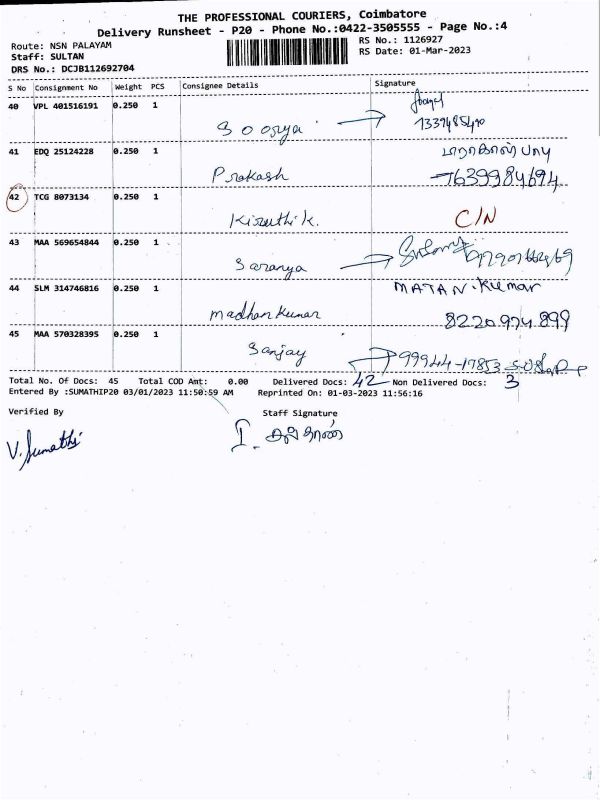 THE PROFESSIONAL COURIERS, Coimbatore
Delivery Runsheet - P20 - Phone No.:0422-3505555 - Page No.:4
Route: NSN PALAYAM RS No.: 1126927
Staff: SULTAN RS Date: 01-Mar-2023
DRS No.: DCJB112692704
S No Consignment No Weight PCS Consignee Details Signature
40 VPL 401516191 0.250 1
Soorya
41 EDQ 25124228 0.250 1
Prakash 7639984694
42 TCG 8073134 0.250 1
Kiruthik. C/N
43 MAA 569654844 0.250 1
Saranya
44 SLM 314746816 0.250 1 MATAN.Kumar
madhan kumar 8220974899
45 MAA 570328395 0.250 1
Sanjay 99944-17853
Total No. Of Docs: 45 Total COD Amt: 0.00 Delivered Docs: 42 Non Delivered Docs: 3
Entered By :SUMATHIP20 03/01/2023 11:50:59 AM Reprinted On: 01-03-2023 11:56:16
Verified By Staff Signature
V. Sumathi